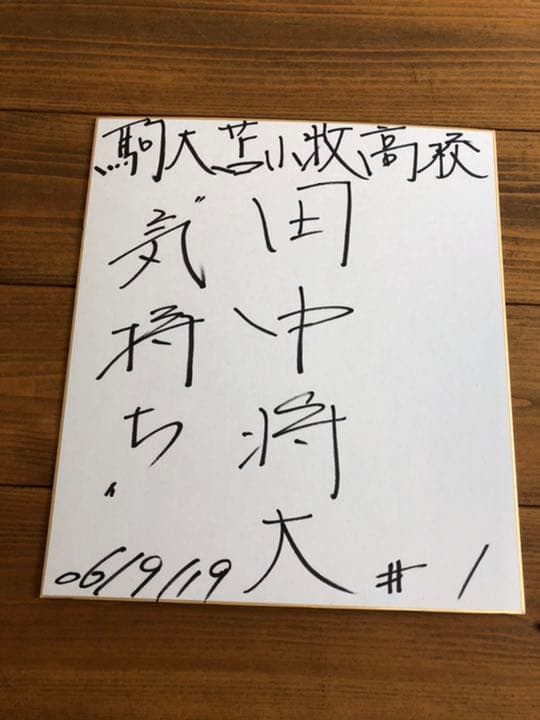 駒大苫小牧高校
田中将大
"気持ち"
06/9/19
#1